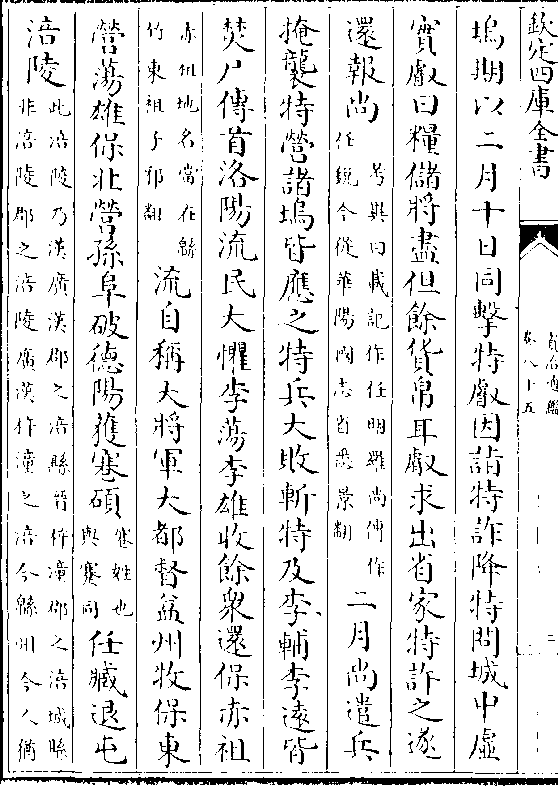 欽定四庫全書
資治通鑑
卷八十五
塢期以二月十日同擊特叡因詣特詐降特問城中虛
實叡曰糧儲將盡但餘貨帛耳叡求出省家特許之遂
還報尚
考異曰載記作任明羅尚傳作
任銳今從華陽國志省悉景翻
二月尚遣兵
掩襲特營諸塢皆應之特兵大敗斬特及李輔李遠皆
焚尸傳首洛陽流民大懼李蕩李雄收餘衆還保赤祖
赤祖地名當在緜
竹東祖子邪翻
流自稱大將軍大都督益州牧保東
營蕩雄保北營孫阜破德陽獲寋碩
寋姓也
與蹇同
任臧退屯
涪陵
此涪陵乃漢廣漢郡之涪縣晉梓潼郡之涪城縣
非涪陵郡之涪陵廣漢梓潼之涪今緜州今人猶